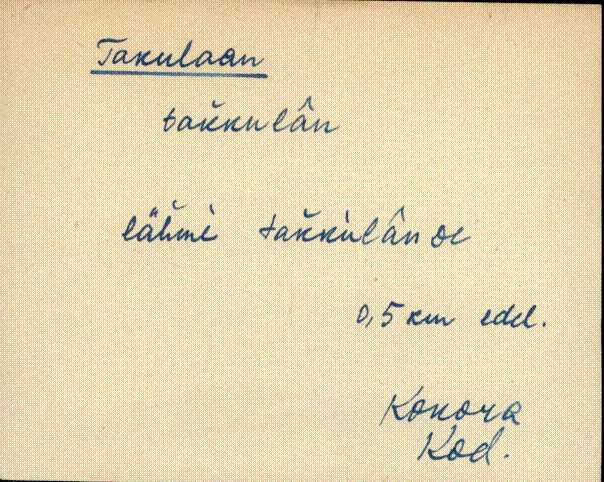 Takulaan
tak̆kulân
läh̆mi tak̆kulân oe
0,5 km edel.
Kokora
Kod.